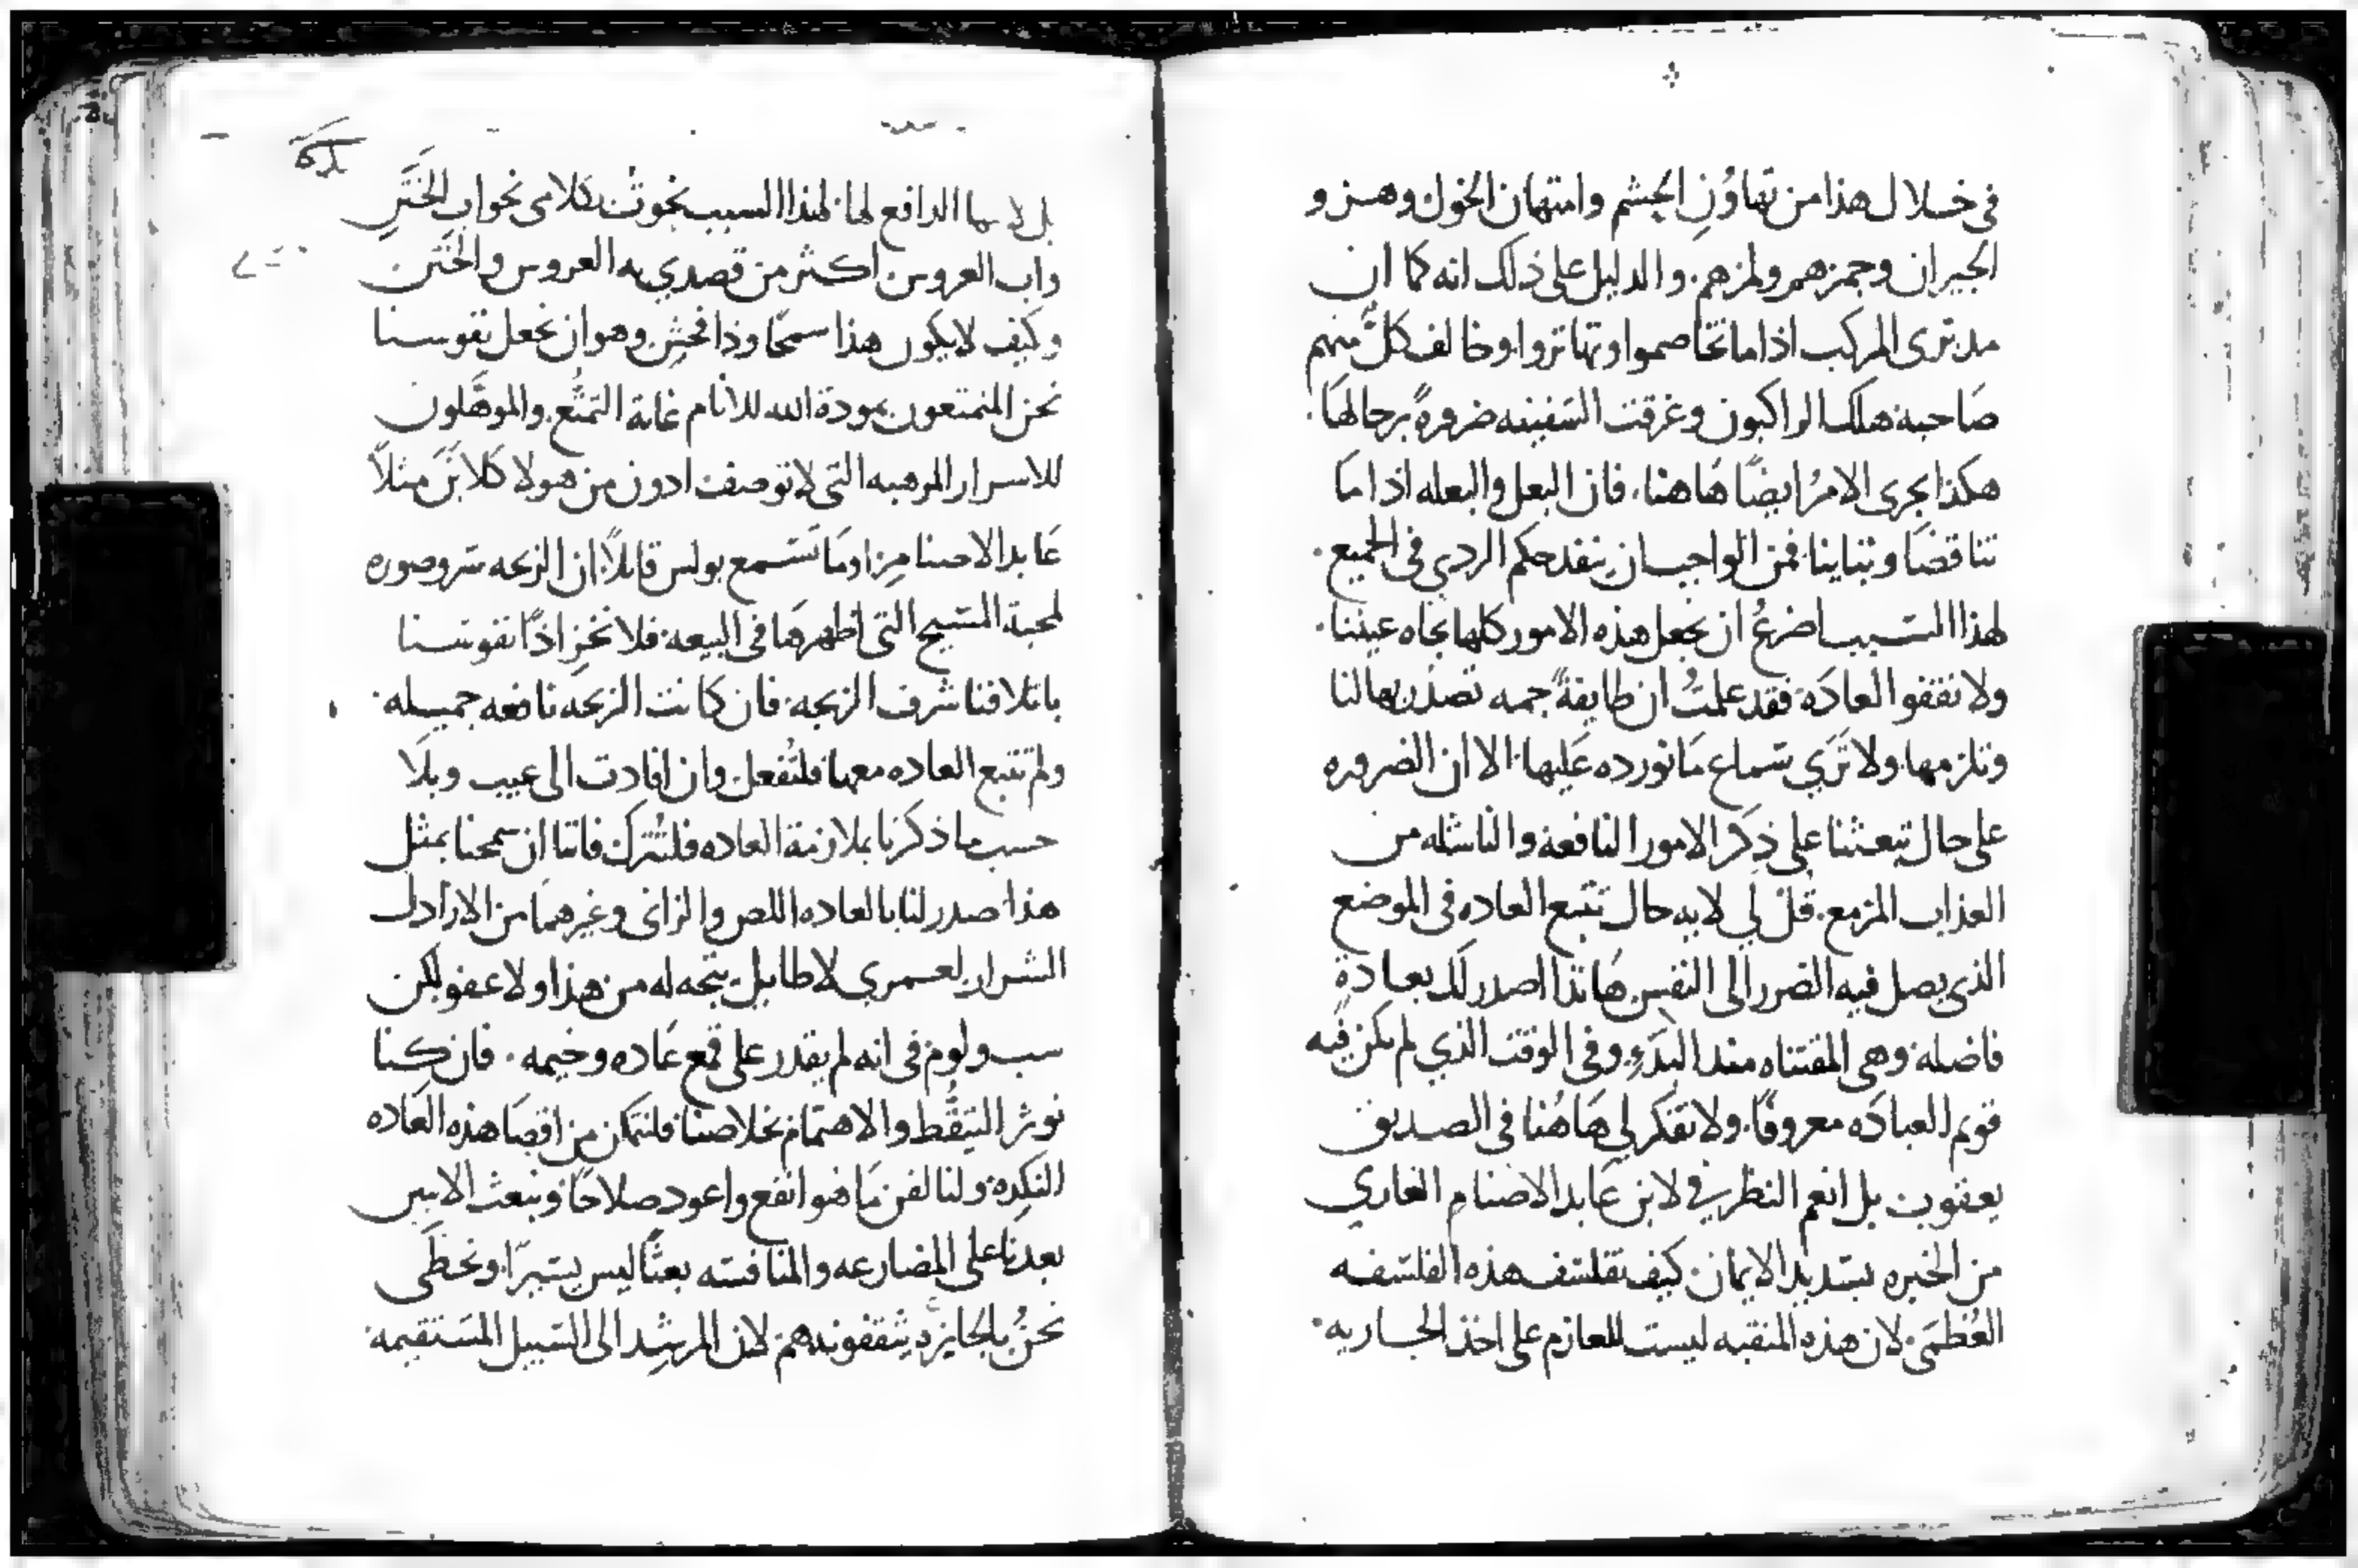 في خلال هذا من تهاوُنِ الحشم وامتهان الخول وهـزو
الجيران وجمزهم ولمزهم. والدليل على ذلك انه كما ان
مدبرى المركب اذا ما تخاصموا وتهاتروا وخالف كلٌّ منهم
صَاحبه هلك الراكبون وغرقت السَفينه ضرورةً برجالهَا.
هكذا يجرى الامرُ ايضًا هَاهنا. فان البعل والبعله اذا مَا
تناقضَا وتباينا فمن الواجب ان ينفد حكم الردي في الجميع.
لهذا السَبب اضرعُ ان نجعل هذه الامور كلها تجاه عيننا.
ولا نقفو العادَه فقد علمتُ ان طايفةً جمه تصدُر بها لنا
وتلزمها. ولا تَرَي سَماع مَا نورده عَليها. الا ان الضروره
على حال تبعثنا على ذِكر الامور النافعة والناشله من
العذاب المزمع. قُل لي لايه حال تتبع العاده في الموضع
الذي يصل فيه الضرر الى النفس هَانذا اصدر لك بعادةٍ
فاضله وهي المقتناه منذ البَدْءِ وفي الوقت الذي لم يكن فيه
قويم العبادَه معروفًا. ولا تفكر لي هَاهُنا في الصديق
يعقوب بل انعم النظر في لابن عَابد الاصنام العاري
من الخبره بسَديد الايمان كيف تفلسَف هذه الفلسَفه
العُظمَى. لان هذه المنقبه ليست للعازم على اخذ الجاريه.
بل لا بها الدافع لها. لهذا السبب نحوتُ بكلامى نحو ابِ الخَتَنِ
واب العروس اكثر من قصدي به العروس والخَتن
وكيف لا يكون هذا سمجًا وذا فحشٍ وهو ان نجعل نفوسنا
نحن المتمتعون بمودة الله للانام غاية التمتُّع. والموهَّلون
للاسرار المرهبه التى لا توصف ادون من هولا كلابَن مثلاً
عَابد الاصنام. اومَا تسَمع بولس قايلاً ان الزيجه سَر وصوره
لمحبة المسَيح التى اظهرهَا في البيعه. فلا نخزِ اذًا نفوسَنا
باتلافنا شرف الزيجه. فان كانت الزيجه نافعه جميله.
ولم تتبع العاده معها فلتُفعل. وان افادت الى عيب وبلَا
حسب ما ذكرنا بملازمة العاده فلتُترك فاننا ان سمحنا بمثل
هذا صدر لنا بالعاده اللص والزانى وغيرهمَا من الاراذل
الشرار لعمري لا طايل يتجه له من هذا ولا عفو لكن
سب ولوم في انه لم يقدر على قمع عَاده وخيمه. فان كنا
نوثر التيقُّظ والاهتمام بخلاصنا فلنتمكن من اقصَا هذه العَاده
النَكِده. ولنالفن مَا هو انفع واعود صلاحًا ونبعث الاتين
بعدنا على المضارعه والمنافسَه بعثًا ليس يسَيرًا. ونحظَى
نحنُ بالجايزه يقفونه هم لان المرشِد الى السَبيل المسَتقيمه